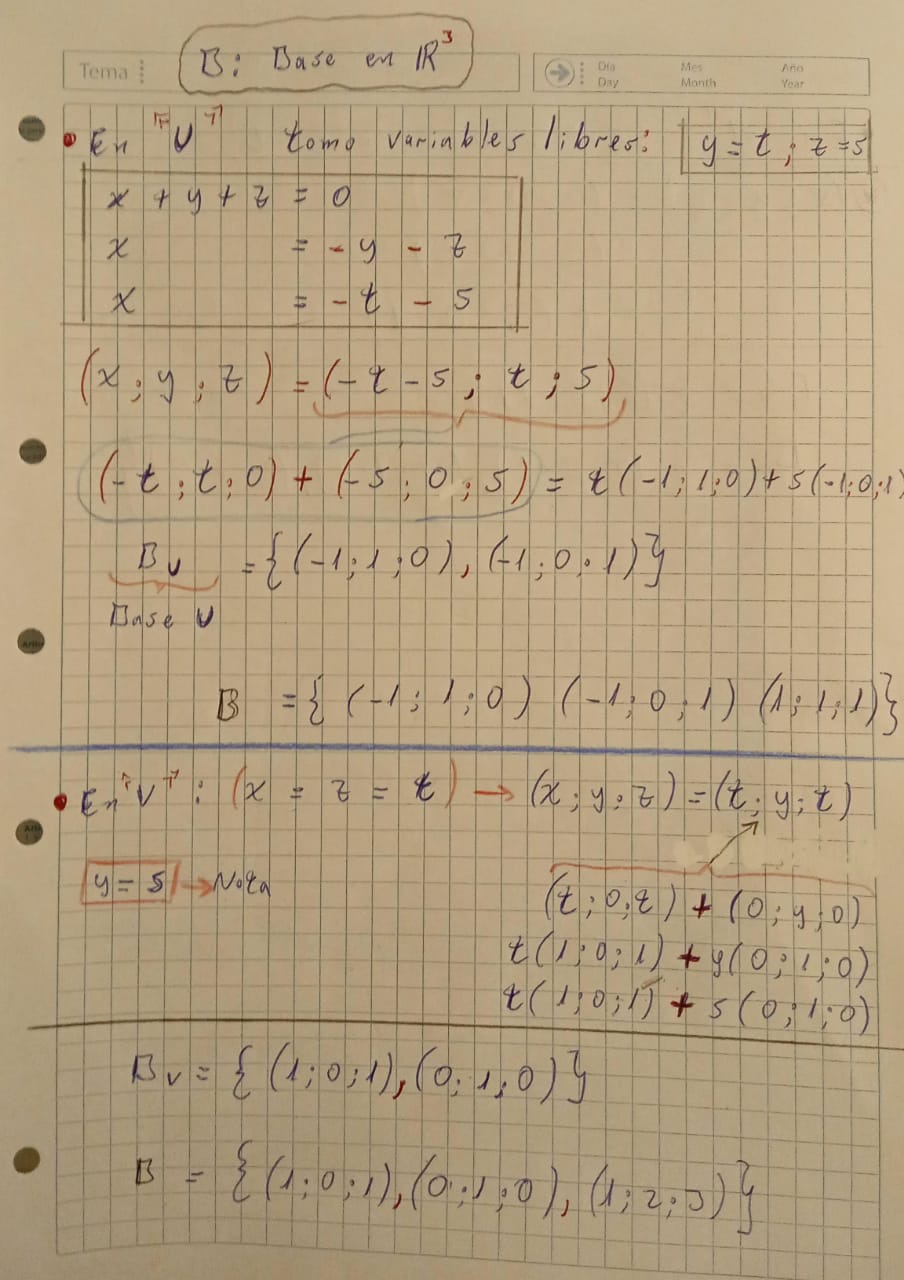 B: Base en IR³
Tema
Día Mes Año
Day Month Year
• En "U" tomo variables libres: y = t ; z = s
x + y + z = 0
x = - y - z
x = - t - s
(x ; y ; z) = (- t - s ; t ; s)
(-t ; t ; 0) + (-s ; 0 ; s) = t (-1 ; 1 ; 0) + s (-1 ; 0 ; 1)
B_U = {(-1 ; 1 ; 0), (-1 ; 0 ; 1)}
Base U
B = { (-1 ; 1 ; 0) (-1 ; 0 ; 1) (1 ; 1 ; 1)}
• En "V" : (x = z = t) → (x ; y ; z) = (t ; y ; t)
y = s → Nota
(t ; 0 ; t) + (0 ; y ; 0)
t (1 ; 0 ; 1) + y (0 ; 1 ; 0)
t (1 ; 0 ; 1) + s (0 ; 1 ; 0)
B_V = { (1 ; 0 ; 1), (0 ; 1 ; 0) }
B = { (1 ; 0 ; 1), (0 ; 1 ; 0), (1 ; 2 ; 3) }